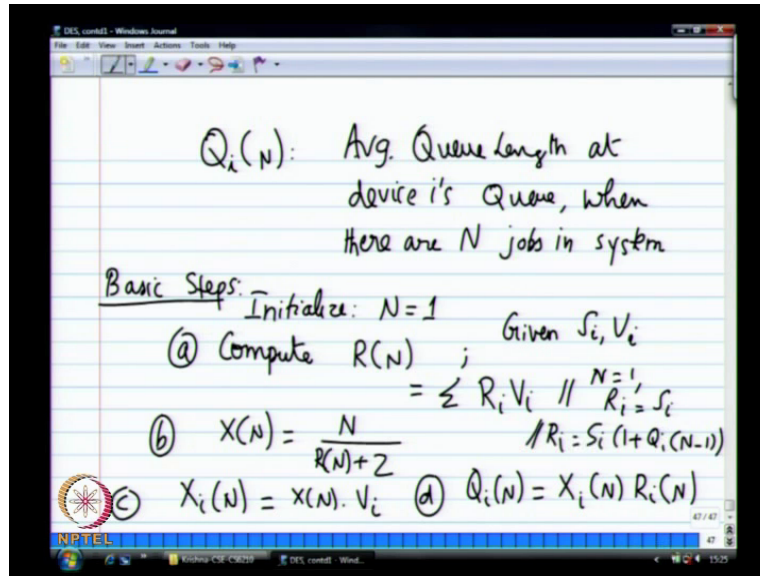 DES, contd1 - Windows Journal
File Edit View Insert Actions Tools Help
Qi(N): Avg. Queue Length at
device i's Queue, when
there are N jobs in system
Basic Steps:
Initialize: N=1
Given Si, Vi
(a) Compute R(N) ;
= Σ Ri Vi // N=1, Ri = Si
// Ri = Si (1+Qi(N-1))
(b) X(N) = N / R(N)+Z
(c) Xi(N) = X(N). Vi (d) Qi(N) = Xi(N) Ri(N)
47 / 47
47
NPTEL
Krishna-CSE-CS6210 DES, contd1 - Wind... 15:25